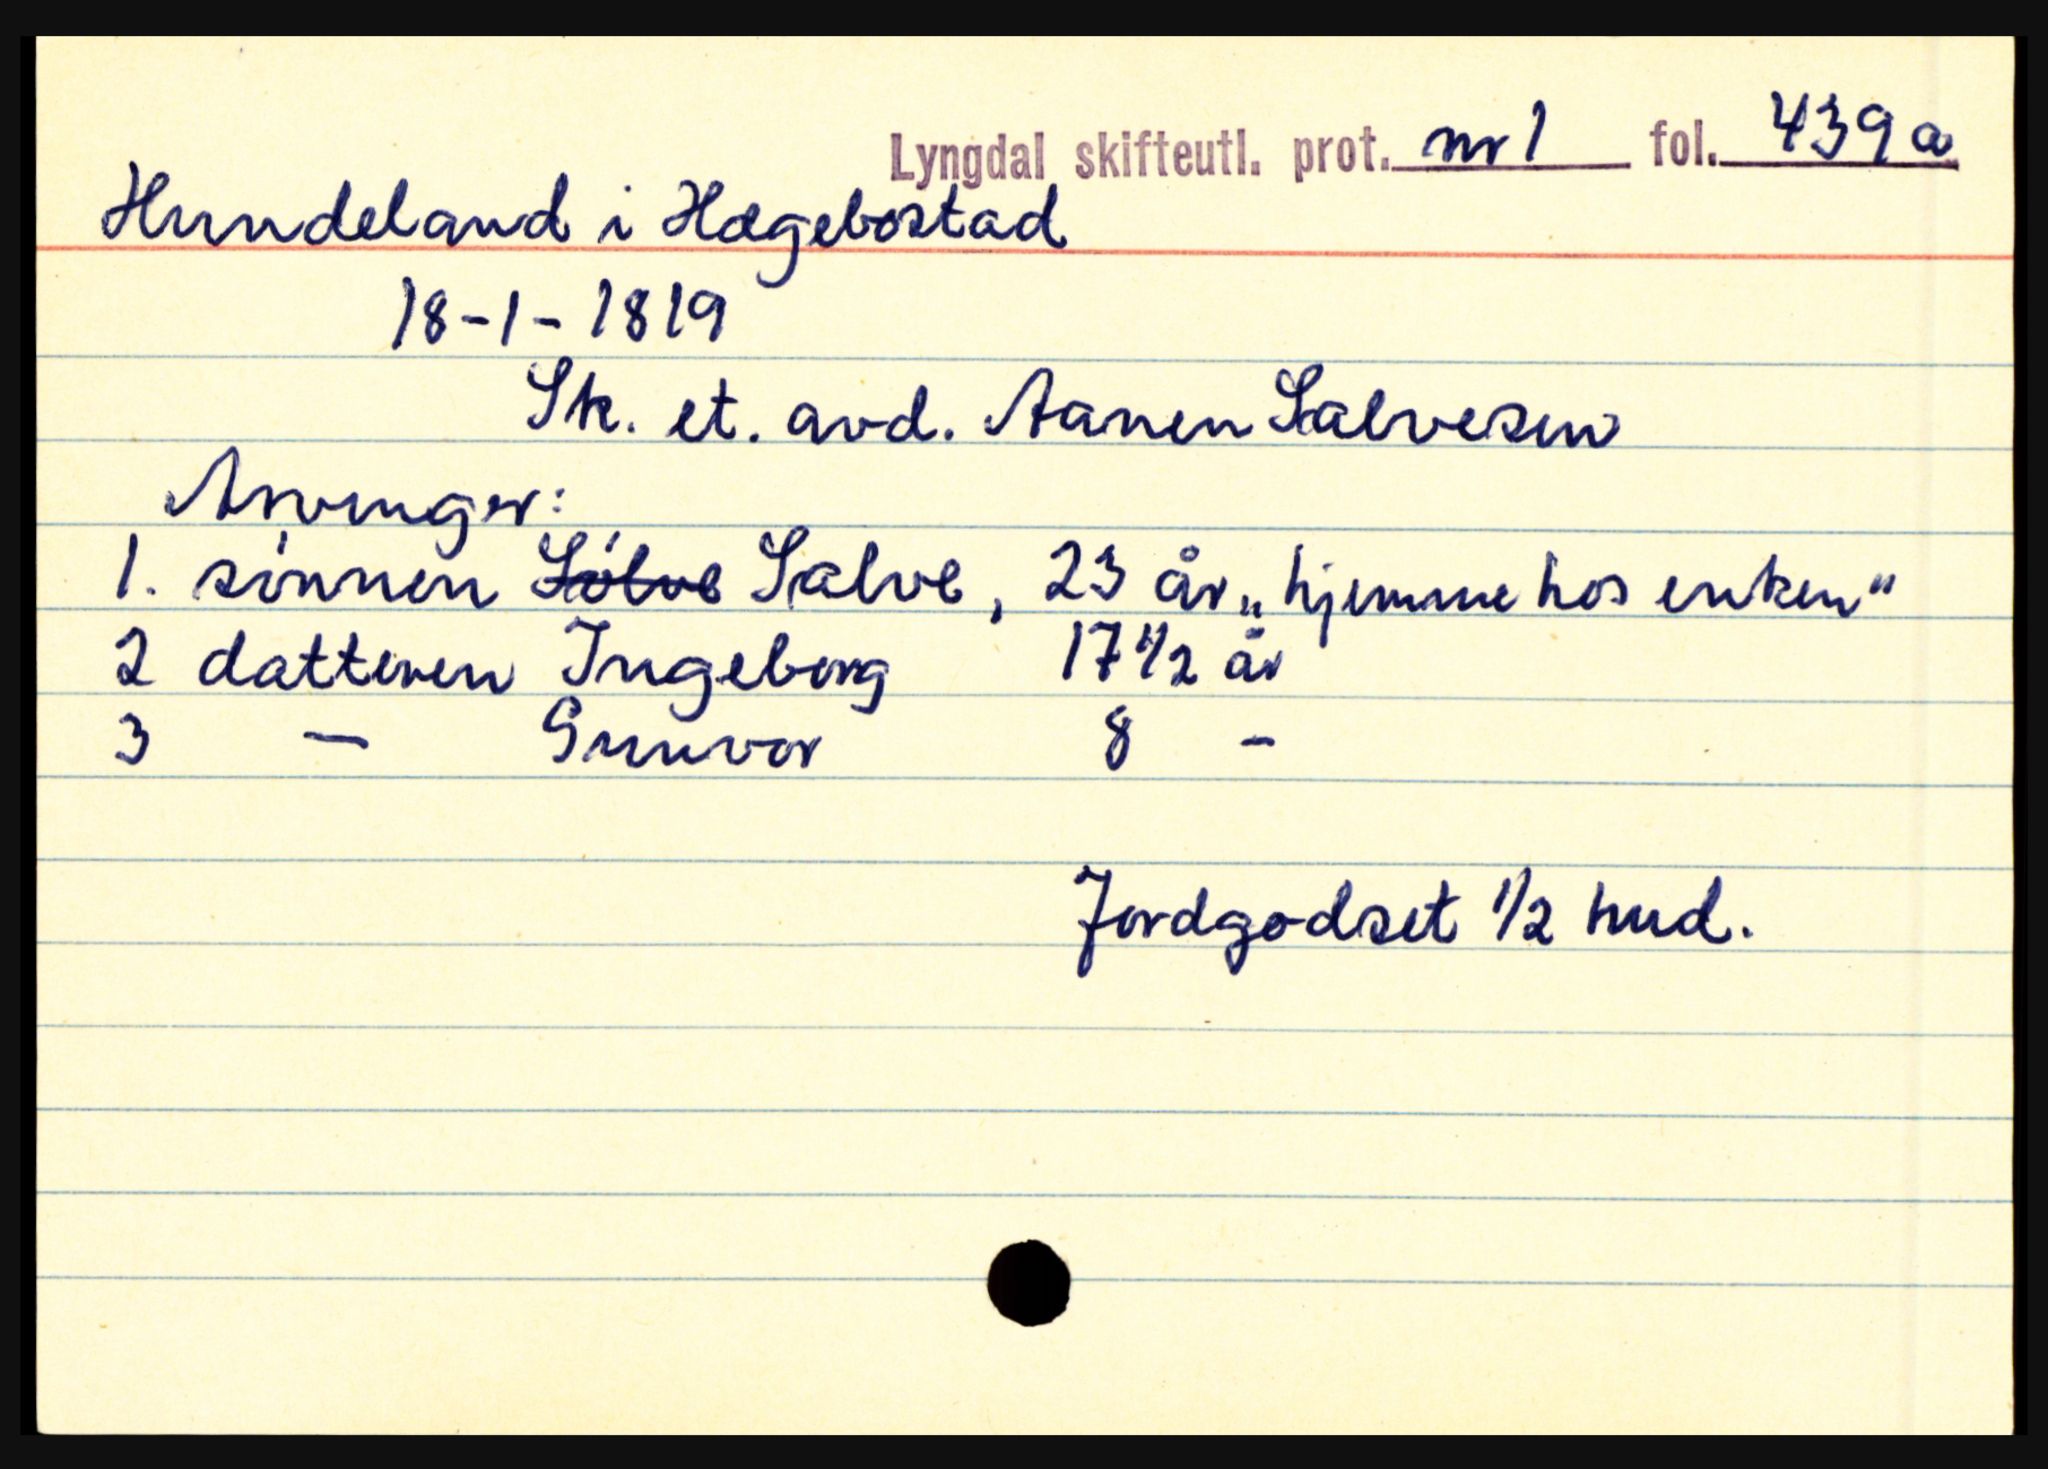 Lyngdal skifteutl. prot. nr 1 fol. 439a
Hundeland i Hægebostad
18-1-1819
Sk. et. avd. Aanen Salvesen
Arvinger:
1. sönnen Sólve Salve, 23 år „hjemme hos enken"
2 datteren Ingeborg 17 1/2 år
3 — Gunvor 8 -
Jordgodset 1/2 hud.